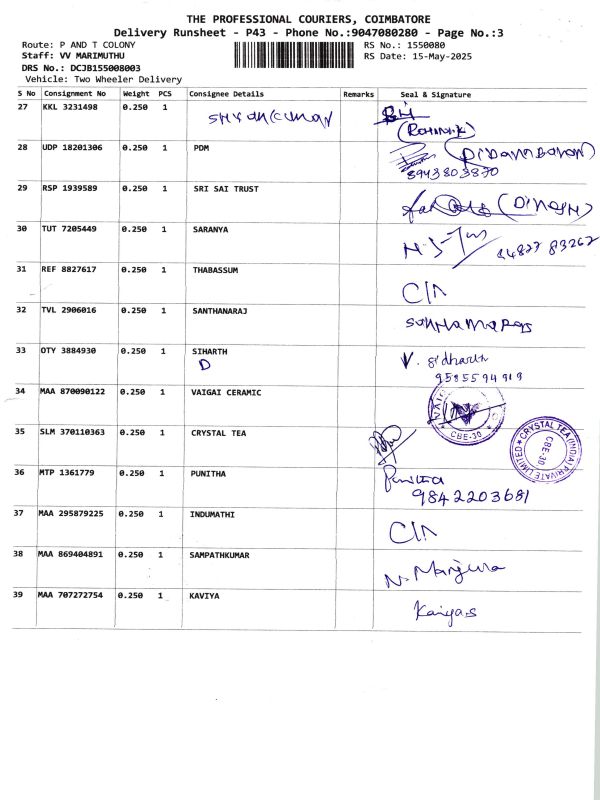 THE PROFESSIONAL COURIERS, COIMBATORE
Delivery Runsheet - P43 - Phone No.:9047080280 - Page No.:3
Route: P AND T COLONY RS No.: 1550080
Staff: VV MARIMUTHU RS Date: 15-May-2025
DRS No.: DCJB155008003
Vehicle: Two Wheeler Delivery
S No Consignment No Weight PCS Consignee Details Remarks Seal & Signature
27 KKL 3231498 0.250 1
28 UDP 18201306 0.250 1 PDM
8943803870
29 RSP 1939589 0.250 1 SRI SAI TRUST (DINESH)
30 TUT 7205449 0.250 1 SARANYA 84827 83262
31 REF 8827617 0.250 1 THABASSUM
32 TVL 2906016 0.250 1 SANTHANARAJ
33 OTY 3884930 0.250 1 SIHARTH V. sidharth
D 9585594919
34 MAA 870090122 0.250 1 VAIGAI CERAMIC
CBE-30
35 SLM 370110363 0.250 1 CRYSTAL TEA
CRYSTAL TEA (INDIA) PRIVATE LIMITED
CBE-30
36 MTP 1361779 0.250 1 PUNITHA Punitha
9842203681
37 MAA 295879225 0.250 1 INDUMATHI
38 MAA 869404891 0.250 1 SAMPATHKUMAR
39 MAA 707272754 0.250 1 KAVIYA Kaviya.s